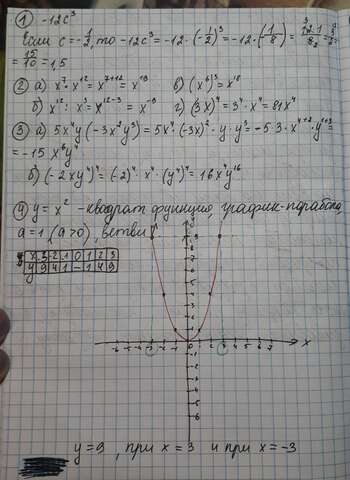 ① -12c³
Если c = -1/2, то -12c³ = -12 · (-1/2)³ = -12 · (-1/8) = 12·1/8 =
= 15/10 = 1,5
② а) x⁷ · x¹² = x⁷⁺¹² = x¹⁹ в) (x⁶)³ = x¹⁸
б) x¹² : x³ = x¹²⁻³ = x⁻⁹ г) (3x)⁴ = 3⁴ · x⁴ = 81x⁴
③ а) 5x⁴y (-3x²y³) = 5x⁴ · (-3x)² · y · y³ = -5·3 · x⁴⁺² · y¹⁺³ =
= -15 x⁶y⁴
б) (-2xy⁴)⁴ = (-2)⁴ · x⁴ · (y⁴)⁴ = 16x⁴y¹⁶
④ y = x² - квадрат функция, график - парабола,
a = 1, (a>0), ветви
x -3 -2 -1 0 1 2 3
y 9 4 1 - 1 4 9
-6 -5 -4 -3 -2 -1 0 1 2 3 4 5 6 7 x
y = 9, при x = 3 и при x = -3